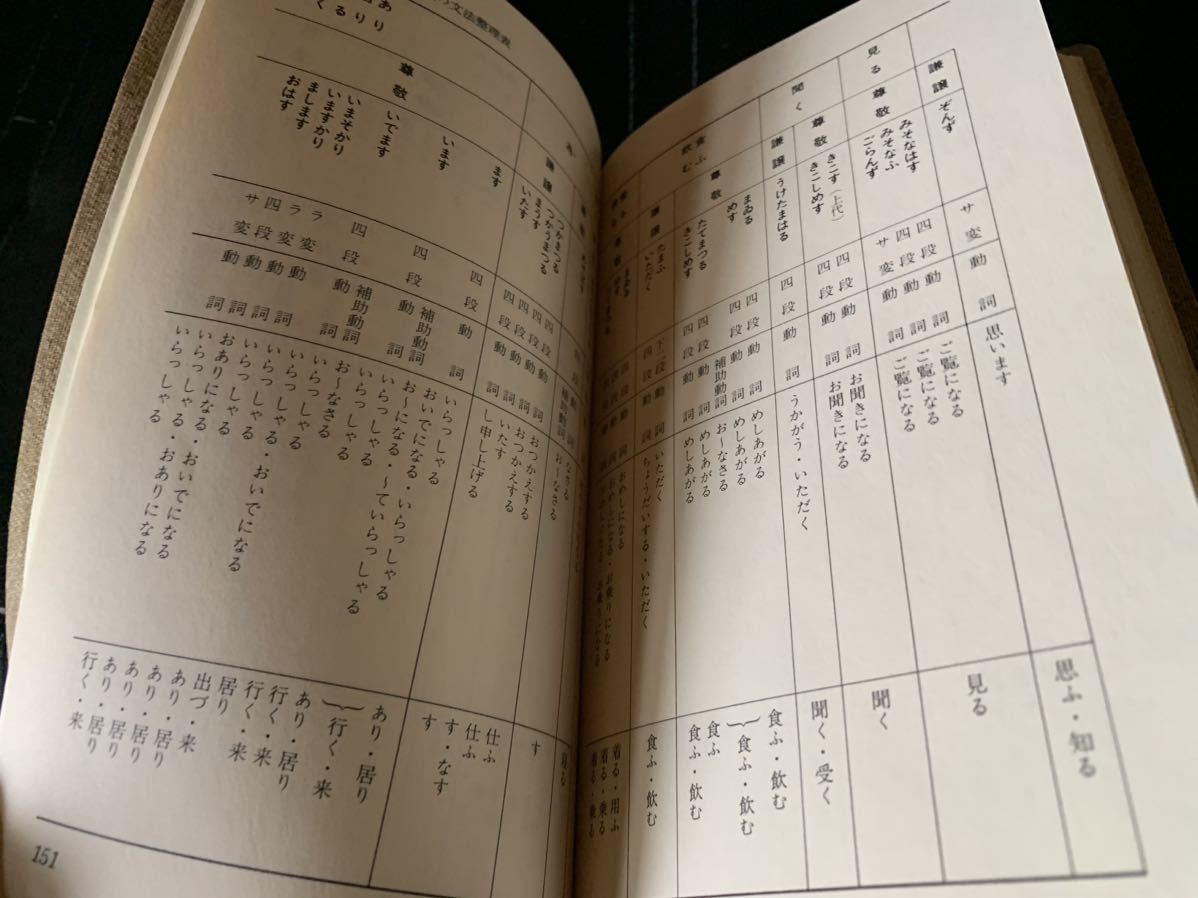 謙譲
ぞんず
サ変
動詞
思います
思ふ・知る
見る
尊敬
みそなはす
みそなふ
ごらんず
四段
四段
サ変
動詞
動詞
動詞
ご覧になる
ご覧になる
ご覧になる
見る
聞く
尊敬
きこす（上代）
きこしめす
四段
四段
動詞
動詞
お聞きになる
お聞きになる
聞く
謙譲
うけたまはる
四段
動詞
うかがう・いただく
聞く・受く
食ふ
飲む
尊敬
まゐる
めす
たてまつる
きこしめす
四段
四段
四段
四段
動詞
動詞
補助動詞
動詞
めしあがる
めしあがる
お〜なさる
めしあがる
めしあがる
食ふ・飲む
食ふ・飲む
食ふ
食ふ・飲む
謙譲
たまふ
いただく
下二段
四段
動詞
動詞
いただく
ちょうだいする・いただく
食ふ・飲む
おめしになる
おめしになる・お乗りになる
着る・用ふ
着る・乗る
着る・乗る
文法整理表
なさる
お〜なさる
す
謙譲
つかまつる
つかうまつる
まうす
いたす
四段
四段
四段
四段
動詞
動詞
動詞
動詞
おつかえする
おつかえする
いたす
し申し上げる
仕ふ
仕ふ
す・なす
す
あり
尊敬
ます
います
いでます
いまそかり
いますかり
まします
おはす
四段
四段
四段
ラ変
ラ変
四段
サ変
動詞
補助動詞
動詞
補助動詞
動詞
動詞
動詞
動詞
動詞
いらっしゃる
おいでになる
お〜になる・いらっしゃる
いらっしゃる・〜ていらっしゃる
いらっしゃる
お〜なさる
いらっしゃる
いらっしゃる
いらっしゃる・おいでになる
おありになる
いらっしゃる・おありになる
いらっしゃる
あり・居り
行く・来
あり・居り
行く・来
行く・来
居り
出づ・来
あり・居り
あり・居り
あり・居り
あり・居り
行く・来
151